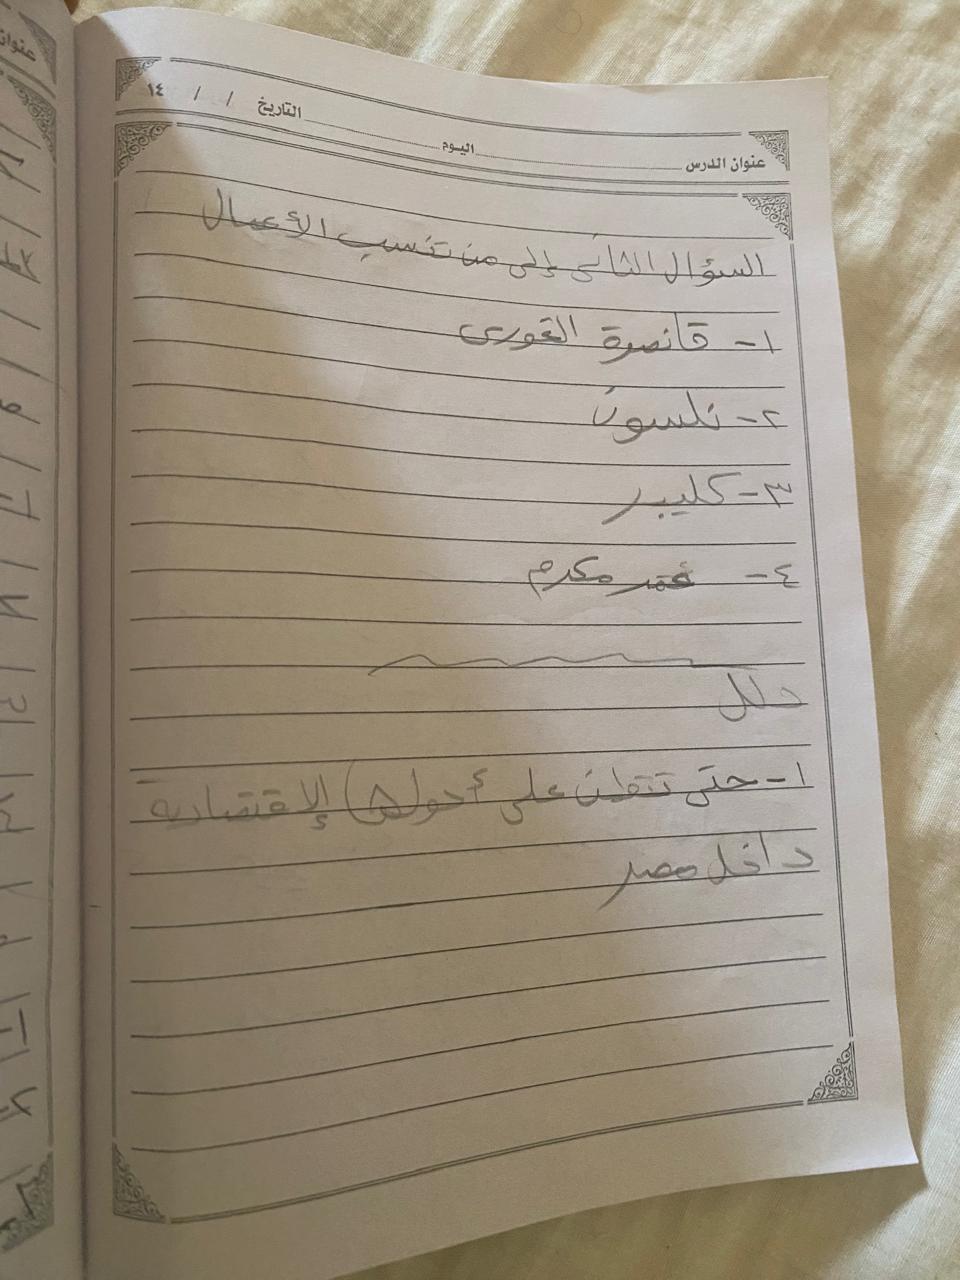 التاريخ / / ١٤
اليوم
عنوان الدرس
السؤال الثاني إلى من تنسب الأعمال
١- قانصوة الغورى
٢- نلسون
٣- كليبر
٤- عمر مكرم
دلل
١- حتى تتقلن على أحولها الإقتصادية
داخل مصر
عنوان